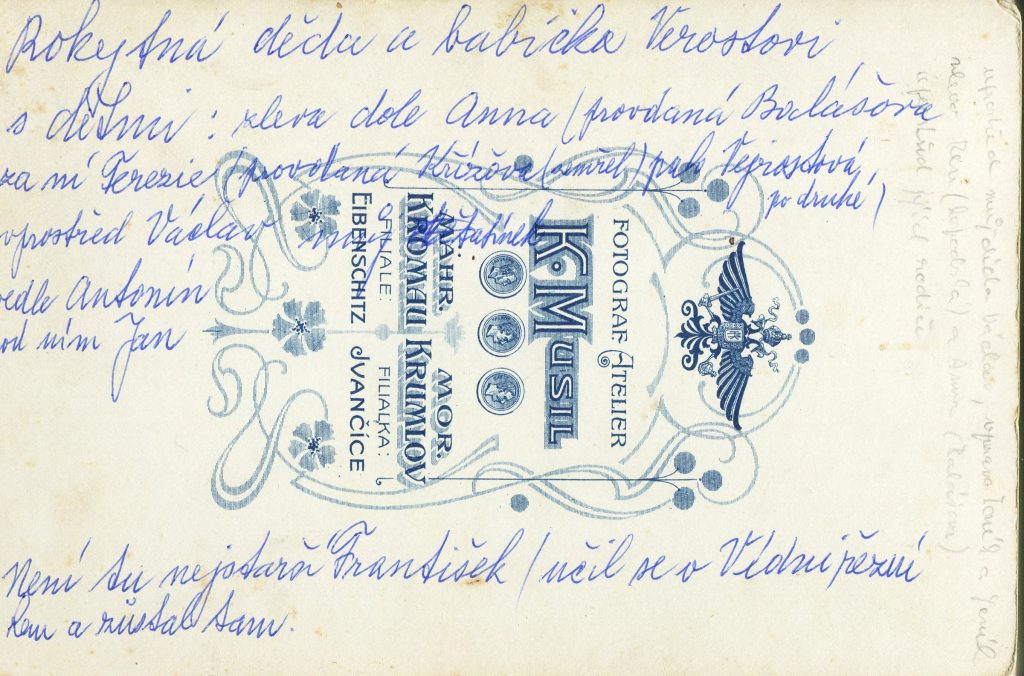 Rokytná děda a babička Verostovi
s dětmi: zleva dole Anna (provdaná Balášova
za ní Terezie (provdaná Křížova (zemřel) pak Vejrostová
po druhé)
uprostřed Václav můj tatínek
vedle Antonín
pod ním Jan
Není tu nejstarší František (učil se v Vídni řezní
kem a zůstal tam.
FOTOGRAF. ATELIER
K. MUSIL
MÄHR. MOR.
KROMAU KRUMLOV
FILIALE: FILIALKA:
EIBENSCHITZ IVANČICE
uprostřed můj děda Václav, vpravo a
vlevo a Anna